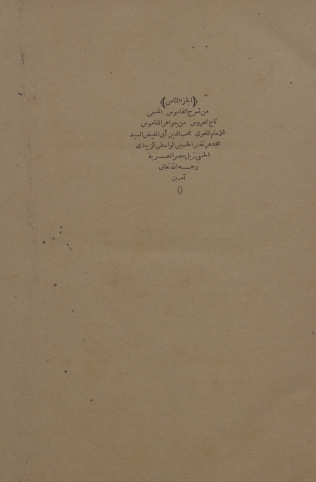 ﴿الجزء الثامن﴾
من شرح القاموس المسمى
تاج العروس من جواهر القاموس
للامام اللغوى محب الدين أبى الفيض السيد
محمد مرتضى الحسينى الواسطى الزبيدى
الحنفى نزيل مصر المعزية
رحمه الله تعالى
آمين